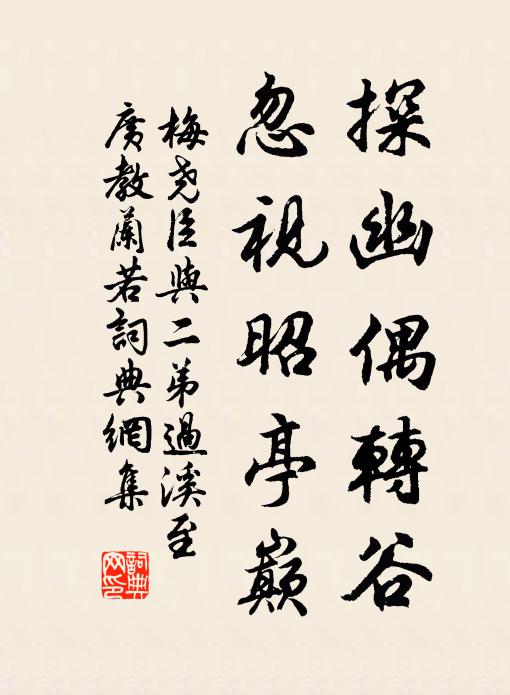 探幽偶轉谷
忽視昭亭巔
梅尧臣與二弟過溪至
廣教蘭若詞典網集
詞典
网印